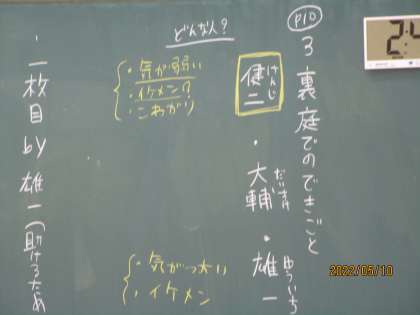 P10
3 裏庭でのできごと
けんじ
健二
・大輔
だいすけ
・雄一
ゆういち
どんな人?
・気が弱い
・イケメン?
・こわがり
・気がつよい
・イケメン
・一枚目 by 雄一(助けるため
2022/05/10